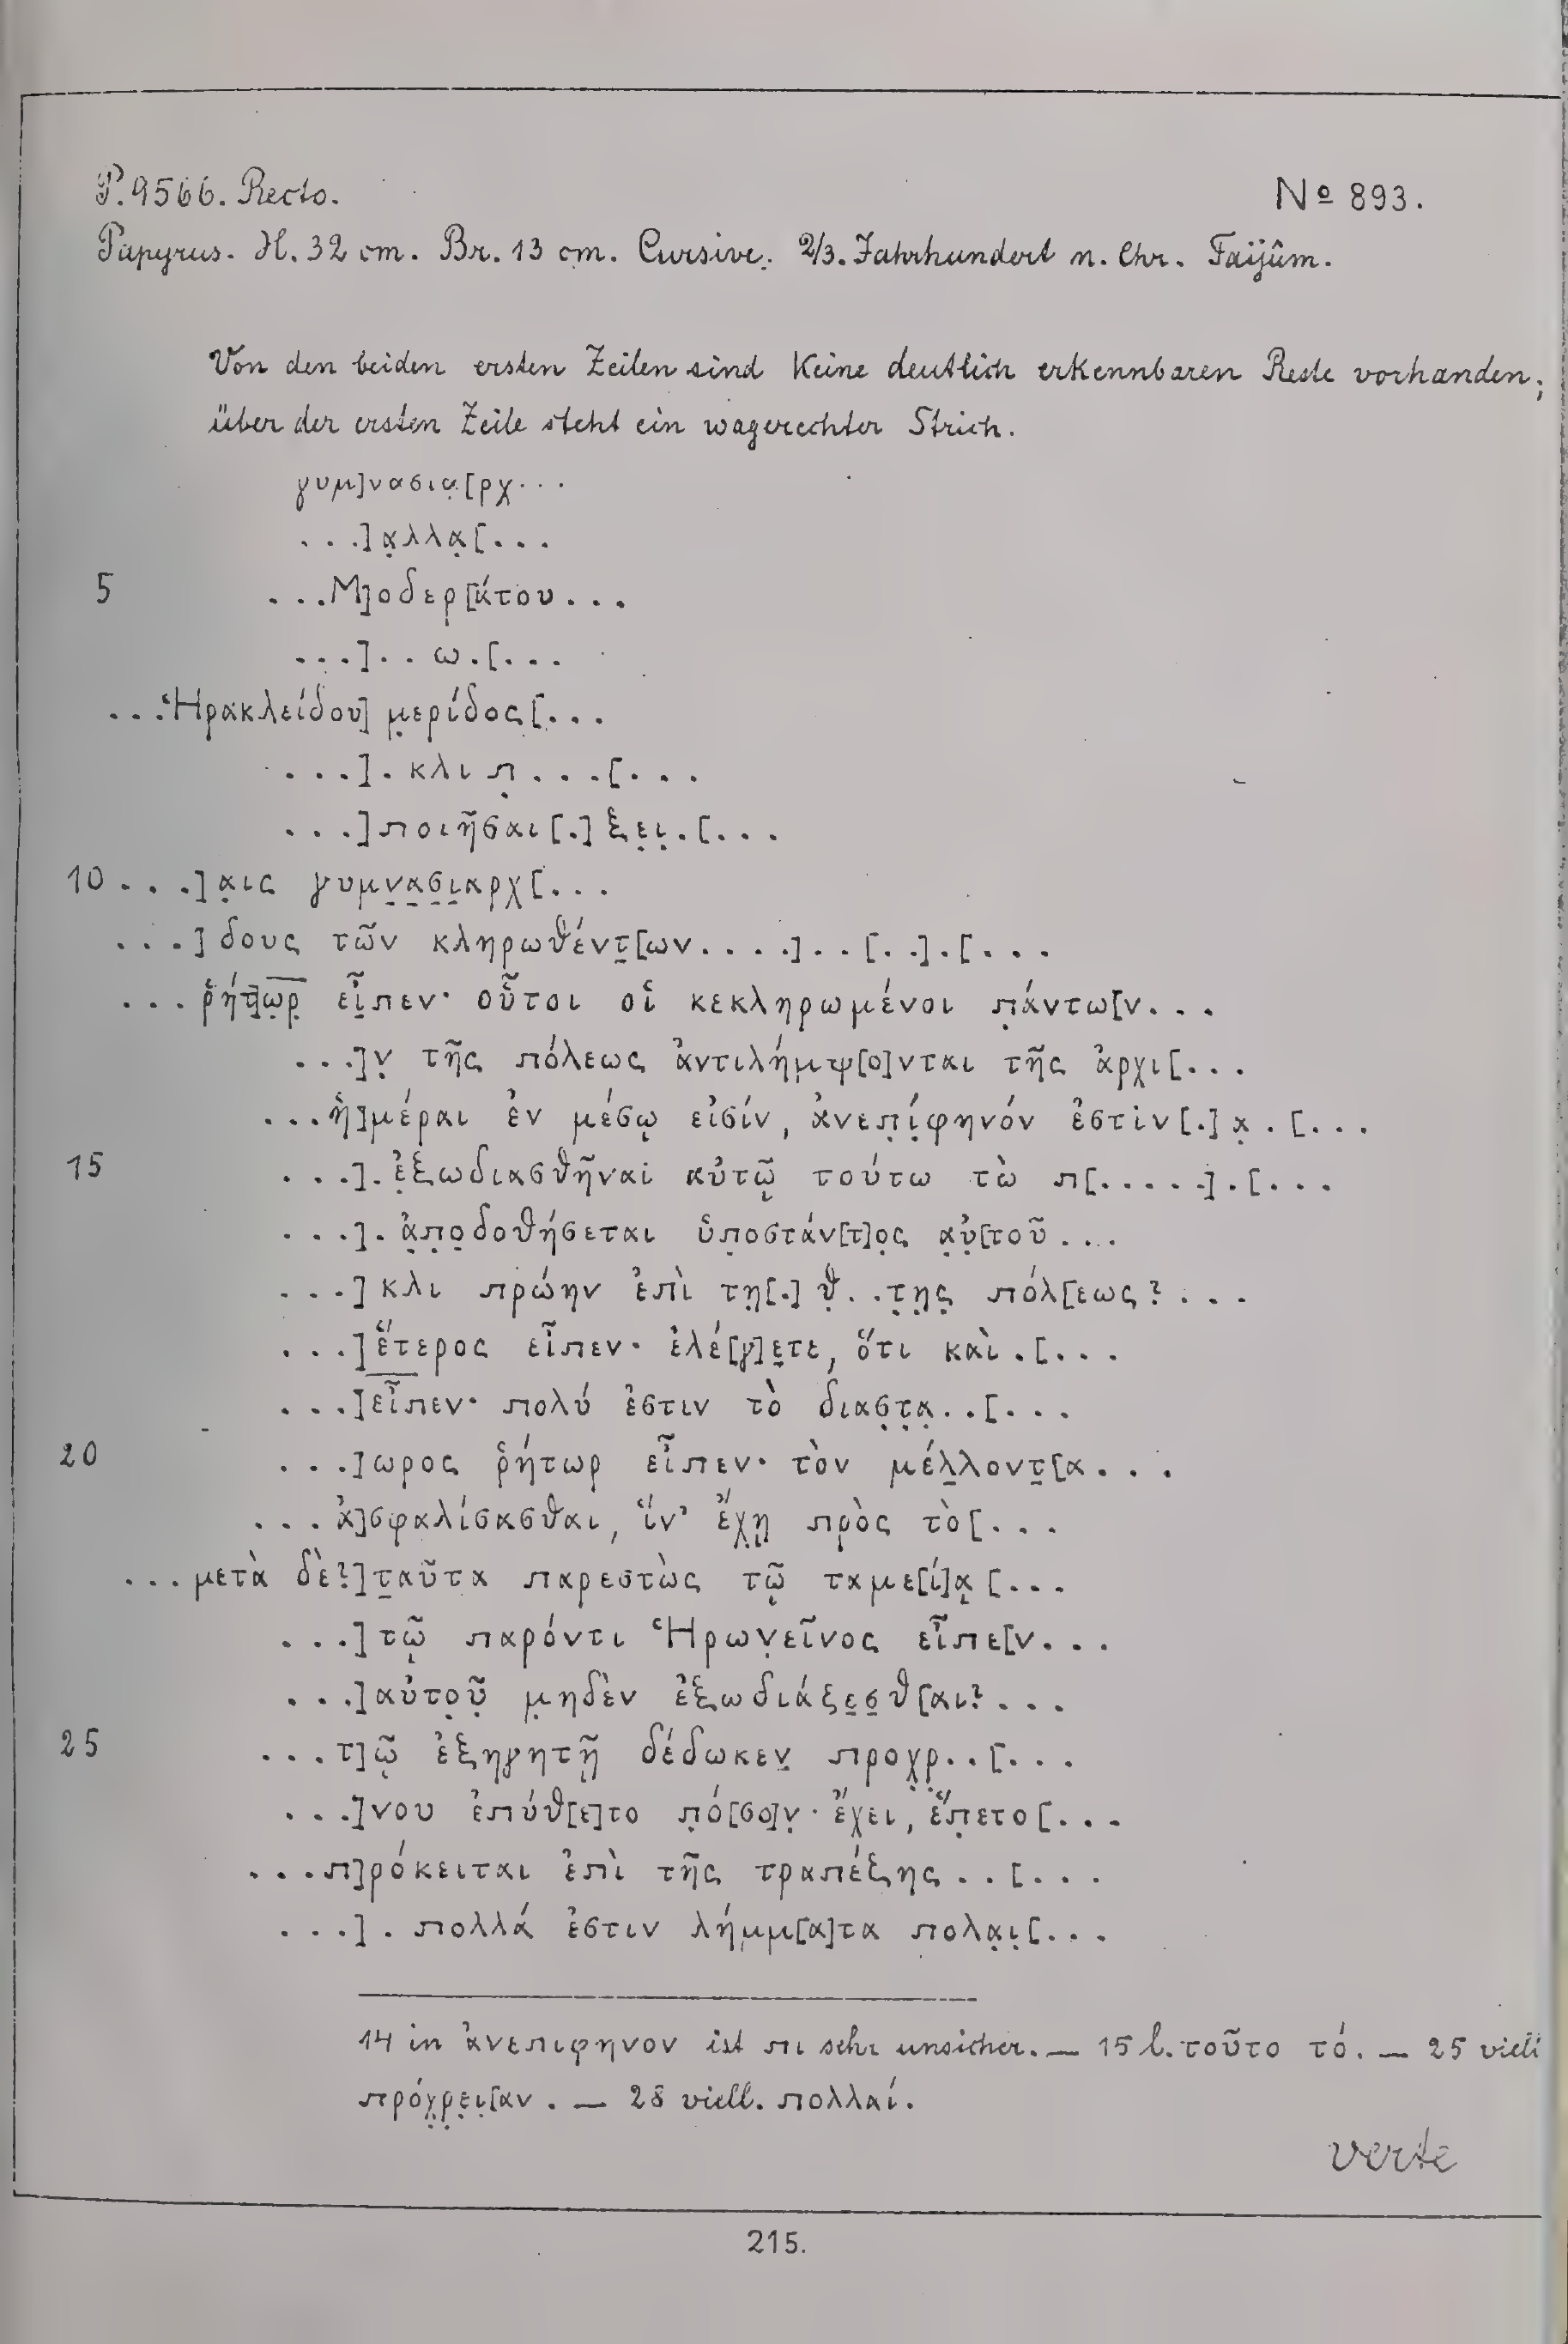 P. 9566. Recto.
No 893.
Papyrus. H. 32 cm. Br. 13 cm. Cursive. 2/3. Jahrhundert n. Chr. Faijûm.
Von den beiden ersten Zeilen sind keine deutlich erkennbaren Reste vorhanden;
über der ersten Zeile steht ein wagerechter Strich.
γυμ]νασια̣[ρχ...
...]α̣λλα̣[...
5 ...Μ]οδερ[άτου...
...]..ω.[...
...Ἡρακλείδου] μ̣ερίδος[...
...].κλιπ̣...[...
...]ποιῆσαι[.]ἑξε̣ι̣.[...
10 ...]α̣ις γυμν̣α̣σ̣ι̣αρχ[...
...]δους τῶν κληρωθέντ̣[ων....]..[..].[...
...ῥήτ]ω̣ρ̣ εἶ̣πεν· οὗτοι οἱ κεκληρωμένοι π̣άντω[ν...
...]ν̣ τῆς πόλεως ἀντιλήμψ[ο]νται τῆς ἀρχι[...
...ἡ]μέραι ἐν μέσῳ εἰσίν, ἀνεπ̣ί̣φηνόν ἐστὶν[.]α̣.[...
15 ...].ἐ̣ξωδιασθῆναι αὐτῷ τούτω τὼ π[.....].[...
...].ἀ̣π̣ο̣δοθήσεται ὑπ̣οστάν[τ]ο̣ς α̣ὐ̣[τοῦ...
...]κλι πρώην ἐπὶ τη̣[.]θ̣..τ̣η̣ς̣ πόλ[εως?...
...]ἕτερος εἶπεν· ἐλέ[γ]ε̣τε, ὅτι καὶ.[...
...]εἶπεν· πολύ ἐστιν τὸ διασ̣τ̣α̣..[...
20 ...]ωρος ῥήτωρ εἶπεν· τὸν μέλ̣λοντ̣[α...
...ἀ]σφαλίσασθαι, ἵν’ ἔχ̣η̣ πρὸς τὸ[...
...μετὰ δὲ?]τ̣αῦτα παρεστὼς τῷ ταμε[ί]ᾳ[...
...]τῷ παρόντι Ἡρων̣εῖνος εἶπε[ν...
...]αὐτο̣ῦ̣ μ̣ηδὲν ἐξωδιάξε̣σ̣θ[αι?...
25 ...τ]ῷ ἐξηγητῇ δέδωκεν̣ προχ̣ρ̣..[...
...]νου ἐπύθ[ε]το π̣ό[σο]ν̣· ἔχει, ἕπ̣ετο[...
...π]ρόκειται ἐπὶ τῆς τραπέζης..[...
...].πολλά ἐστιν λήμμ[α]τα πολα̣ι̣[...
14 in ἀνεπιφηνον ist πι sehr unsicher. — 15 l. τοῦτο τό. — 25 viell
πρόχ̣ρ̣ε̣ι̣[αν. — 28 viell. πολλαί.
verte
215.